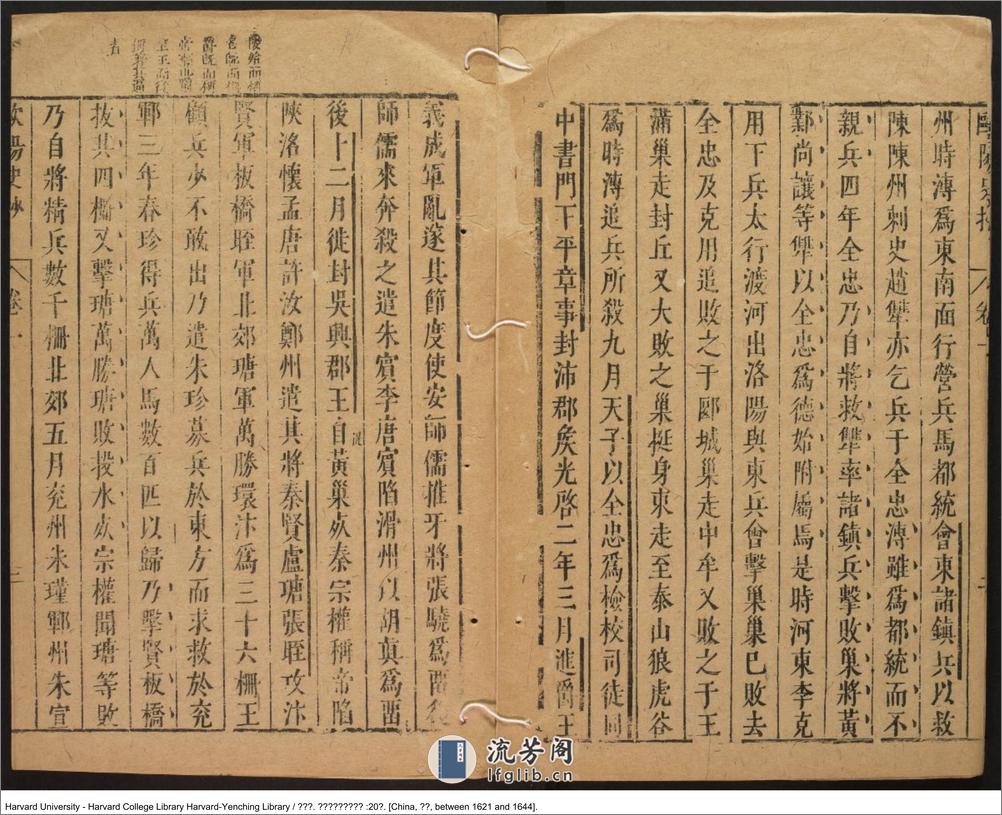 歐陽史抄 卷一 二
州時溥爲東南面行營兵馬都統會東諸鎮兵以救
陳陳州刺史趙犨亦乞兵于全忠溥雖爲都統而不
親兵四年全忠乃自將救犨率諸鎮兵擊敗巢將黃
鄴尚讓等犨以全忠爲德始附屬焉是時河東李克
用下兵太行渡河出洛陽與東兵會擊巢巢已敗去
全忠及克用追敗之于郾城巢走中牟又敗之于王
滿巢走封丘又大敗之巢挺身東走至泰山狼虎谷
爲時溥追兵所殺九月天子以全忠爲檢校司徒同
中書門下平章事封沛郡矦光啓二年三月進爵王
義成軍亂逐其節度使安師儒推牙將張驍爲留後
師儒來奔殺之遣朱賓李唐賓陷滑州以胡真爲留
後十二月徙封吳興郡王自黃巢死秦宗權稱帝陷
陝洛懷孟唐許汝鄭州遣其將秦賢盧瑭張晊攻汴
賢軍板橋晊軍北郊瑭軍萬勝環汴爲三十六柵王
顧兵少不敢出乃遣朱珍募兵於東方而求救於兖
鄆三年春珍得兵萬人馬數百匹以歸乃擊賢板橋
拔其四柵又擊瑭萬勝瑭敗投水死宗權聞瑭等敗
乃自將精兵數千柵北郊五月兖州朱瑾鄆州朱宣
歐陽史抄 卷一 三
流芳阁
lfglib.cn
Harvard University - Harvard College Library Harvard-Yenching Library / ???. ????????? :20?. [China, ??, between 1621 and 1644].